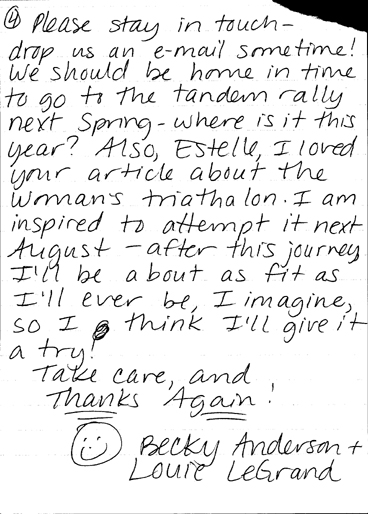 ④ Please stay in touch-
drop us an e-mail sometime!
We should be home in time
to go to the tandem rally
next Spring - where is it this
year? Also, Estelle, I loved
your article about the
woman's triathalon. I am
inspired to attempt it next
August - after this journey
I'll be about as fit as
I'll ever be, I imagine,
so I think I'll give it
a try!
Take care, and
Thanks Again!
Becky Anderson +
Louie LeGrand